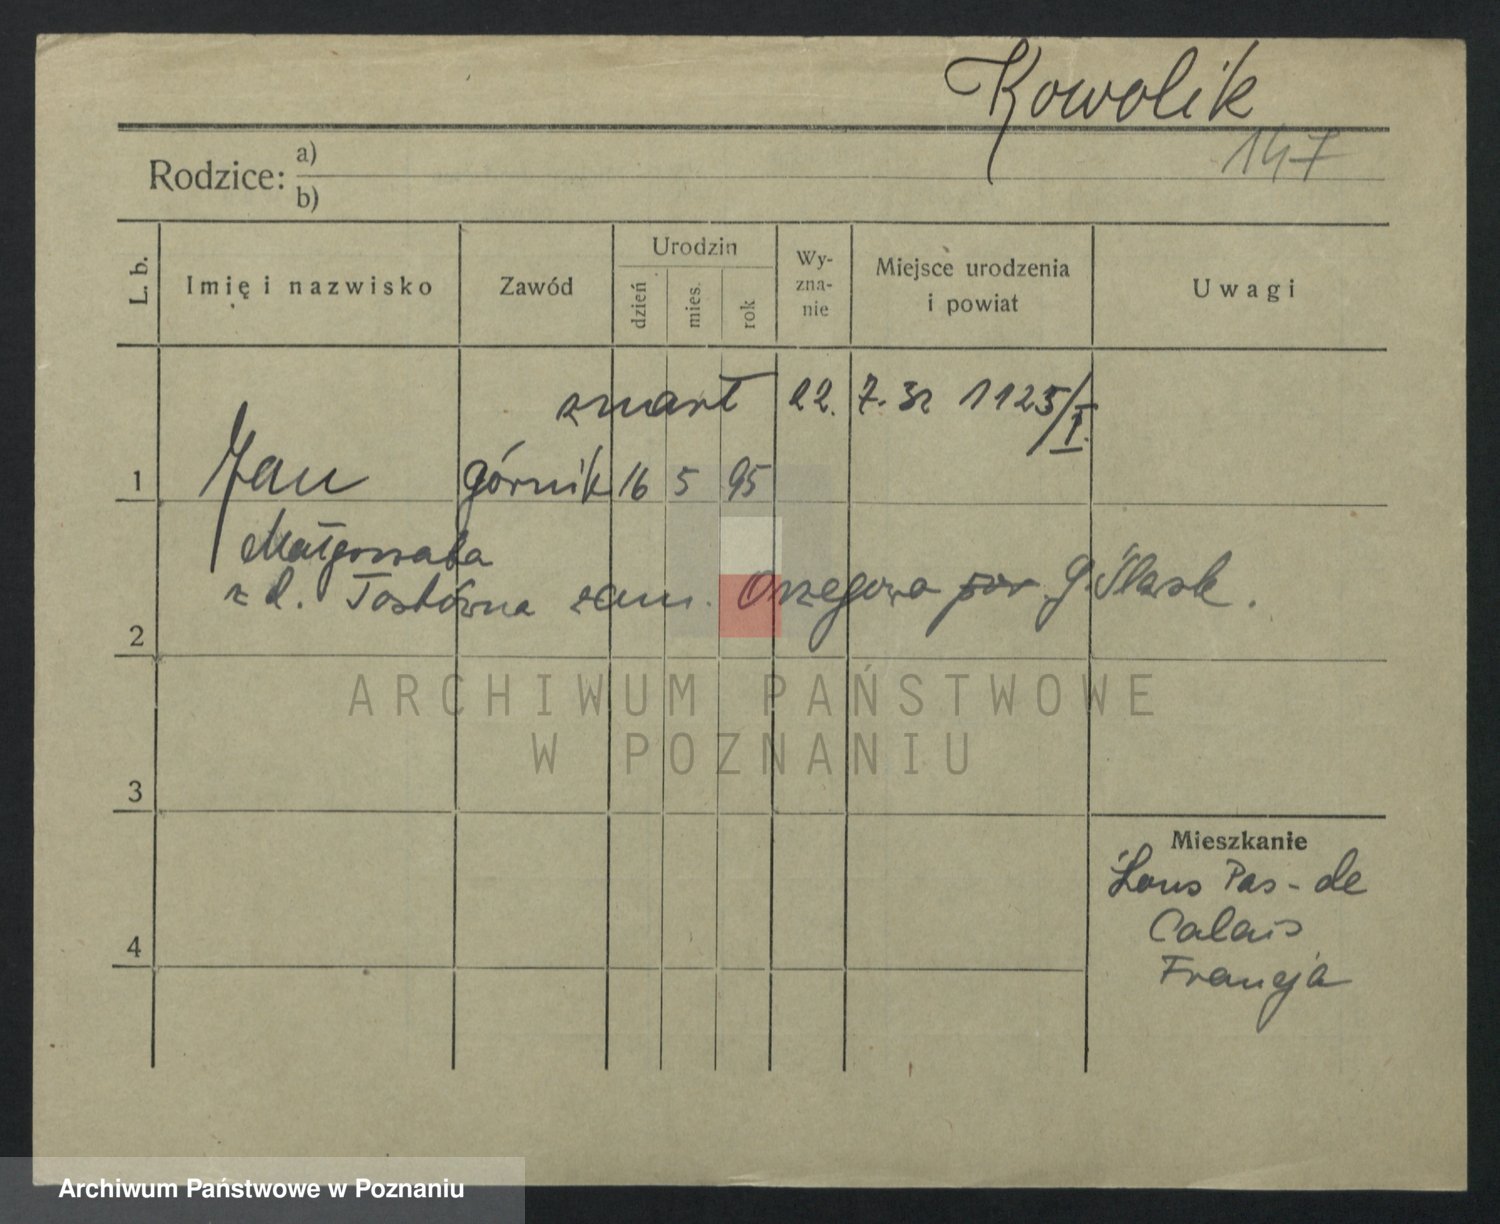 Kowolik
147
Rodzice: a)
b)
L. b.
Imię i nazwisko
Zawód
Urodzin
dzień
mies.
rok
Wy-
zna-
nie
Miejsce urodzenia
i powiat
Uwagi
zmarł 22. 7. 32 1125/I.
1 Jan górnik 16 5 95
Małgorzata
z d. Tostówna zam. Orzegowa pow. G. Śląsk.
2
ARCHIWUM PAŃSTWOWE
W POZNANIU
3
Mieszkanie
Lens Pas-de
Calais
4
Francja
Archiwum Państwowe w Poznaniu